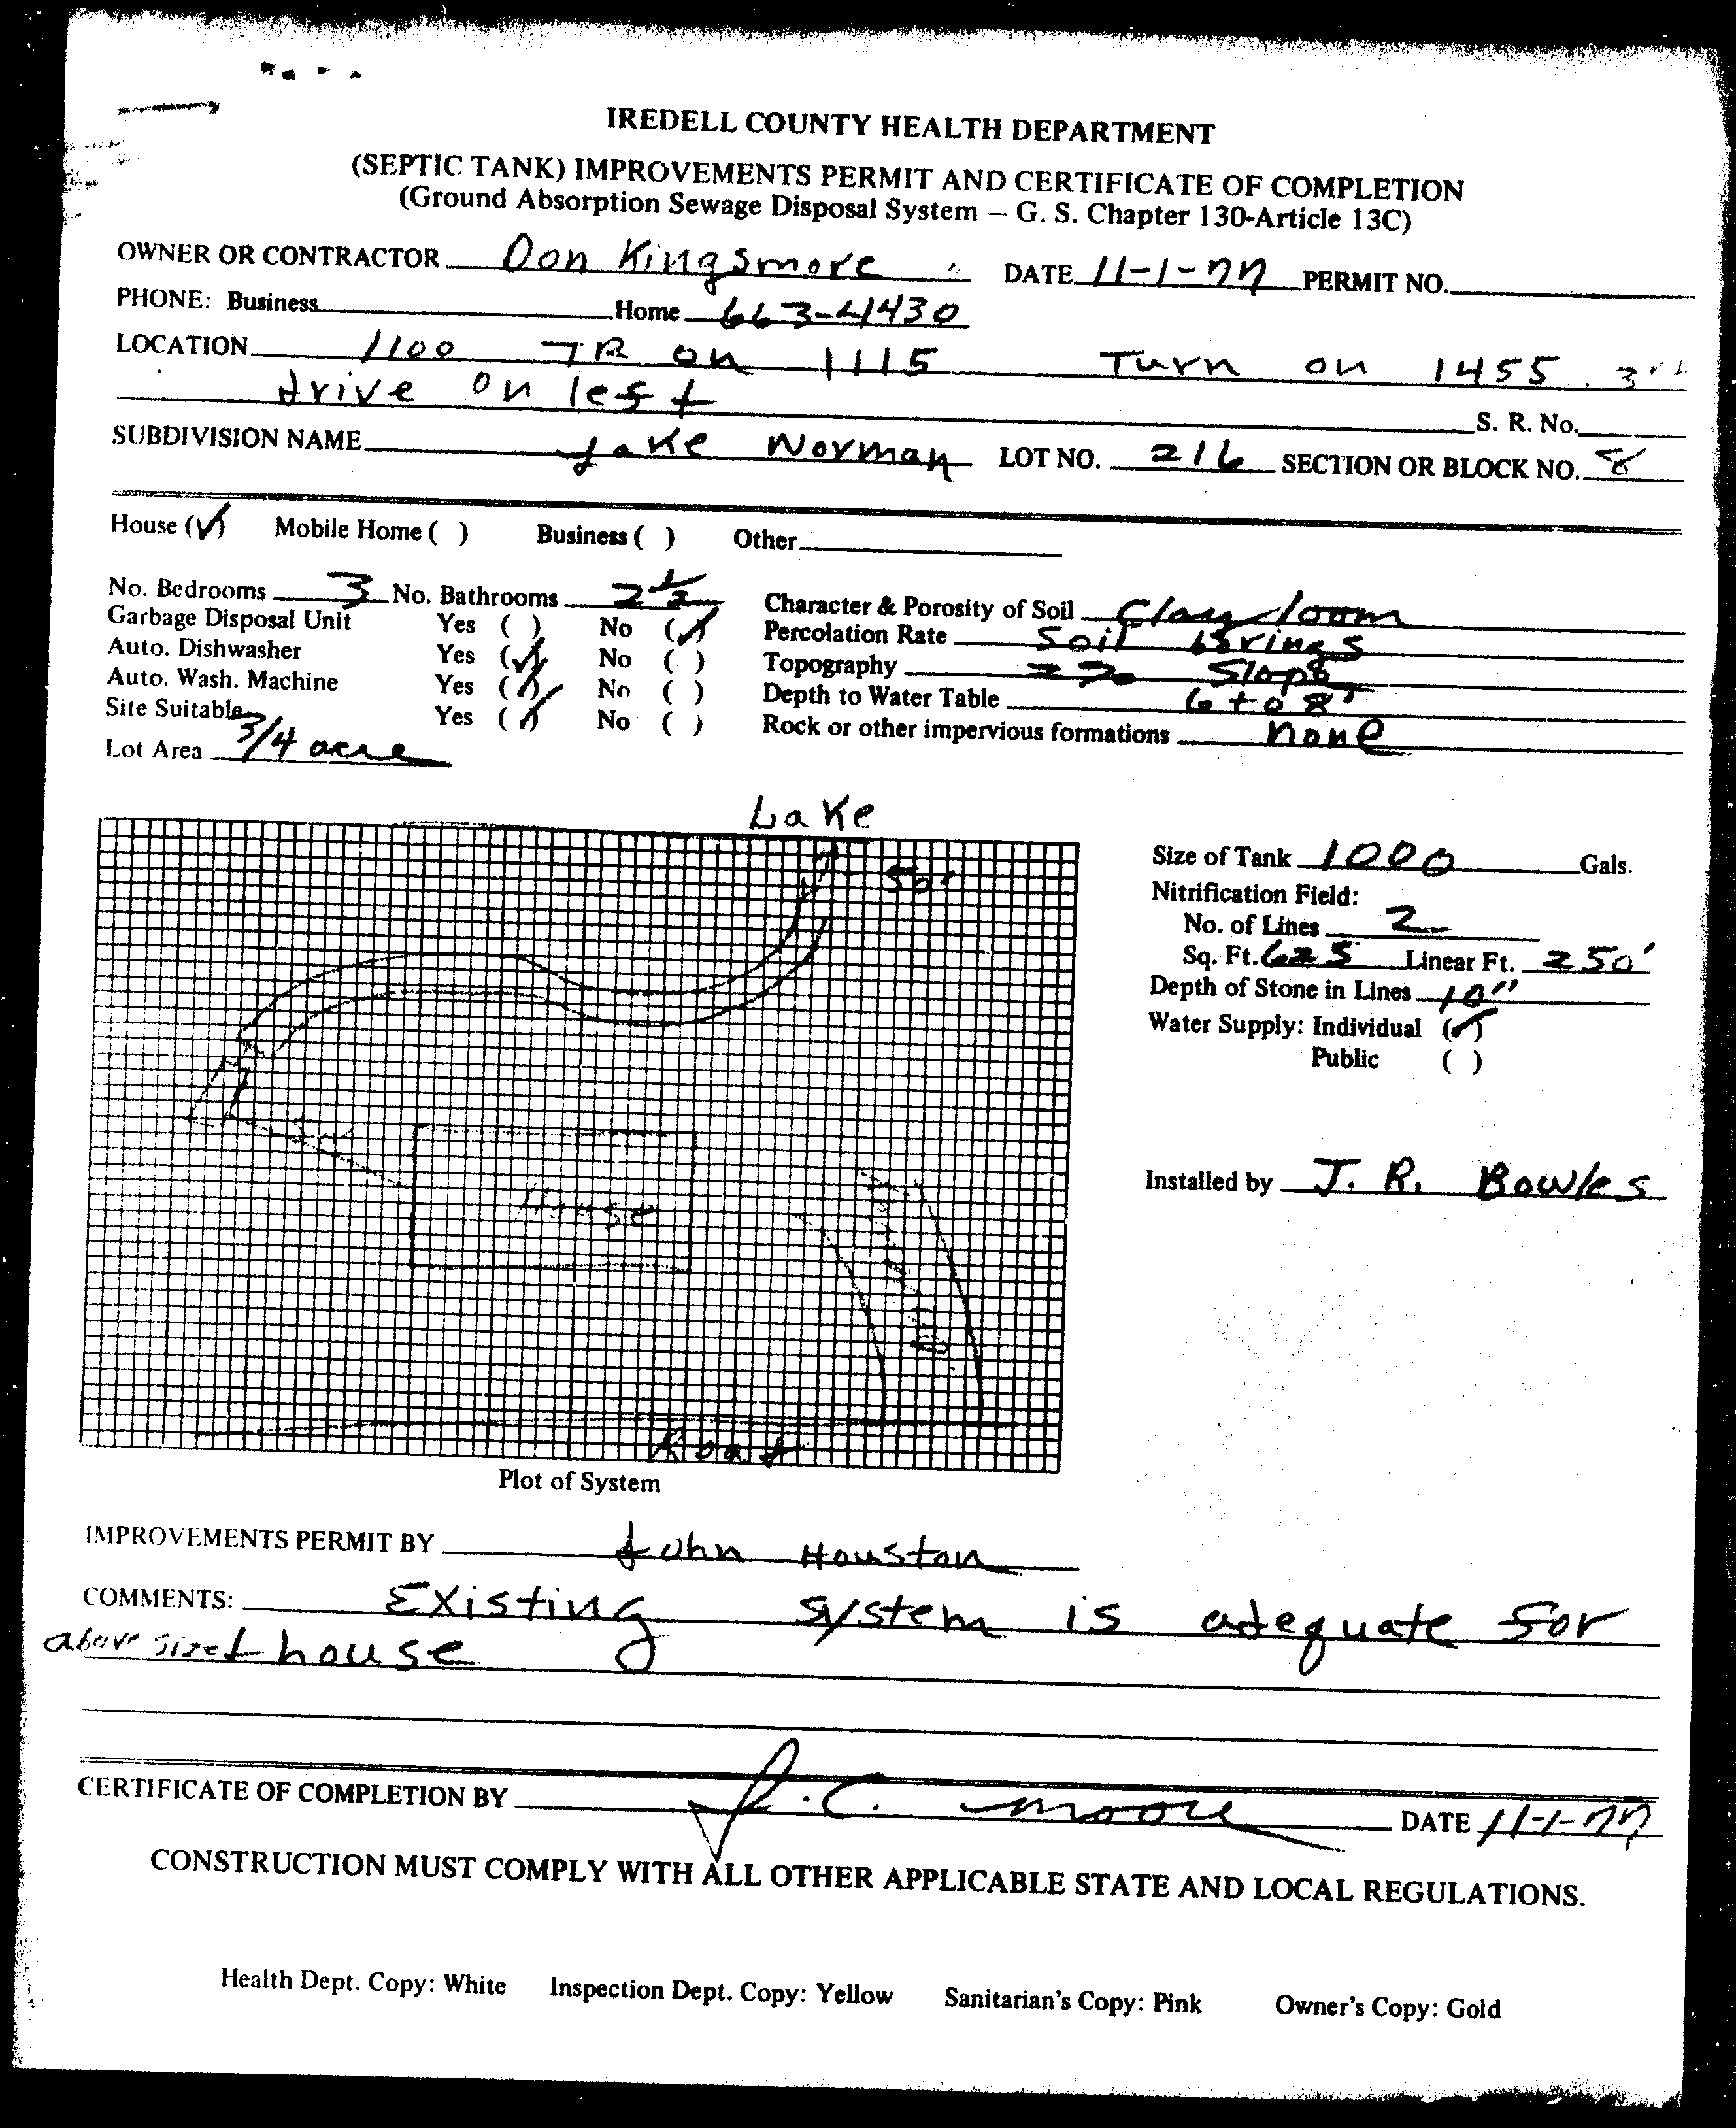 IREDELL COUNTY HEALTH DEPARTMENT
(SEPTIC TANK) IMPROVEMENTS PERMIT AND CERTIFICATE OF COMPLETION
(Ground Absorption Sewage Disposal System – G. S. Chapter 130-Article 13C)
OWNER OR CONTRACTOR Don Kingsmore DATE 11-1-77 PERMIT NO.
PHONE: Business Home 663-4430
LOCATION 1100 TR on 1115 Turn on 1455 3rd
drive on left
S. R. No.
SUBDIVISION NAME Lake Norman LOT NO. 216 SECTION OR BLOCK NO. 8
House (✓) Mobile Home ( ) Business ( ) Other
No. Bedrooms 3 No. Bathrooms 2 1/2 Character & Porosity of Soil Clay loom
Garbage Disposal Unit Yes ( ) No (✓) Percolation Rate Soil Borings
Auto. Dishwasher Yes (✓) No ( ) Topography Slope
Auto. Wash. Machine Yes (✓) No ( ) Depth to Water Table 6 to 8'
Site Suitable Yes (✓) No ( ) Rock or other impervious formations none
Lot Area 3/4 acre
Lake
50'
House
Road
Plot of System
Size of Tank 1000 Gals.
Nitrification Field:
No. of Lines 2
Sq. Ft. 625 Linear Ft. 250'
Depth of Stone in Lines 10"
Water Supply: Individual (✓)
Public ( )
Installed by J. R. Bowles
IMPROVEMENTS PERMIT BY John Houston
COMMENTS: Existing system is adequate for
above sized house
CERTIFICATE OF COMPLETION BY J. C. Moore DATE 11-1-77
CONSTRUCTION MUST COMPLY WITH ALL OTHER APPLICABLE STATE AND LOCAL REGULATIONS.
Health Dept. Copy: White Inspection Dept. Copy: Yellow Sanitarian's Copy: Pink Owner's Copy: Gold